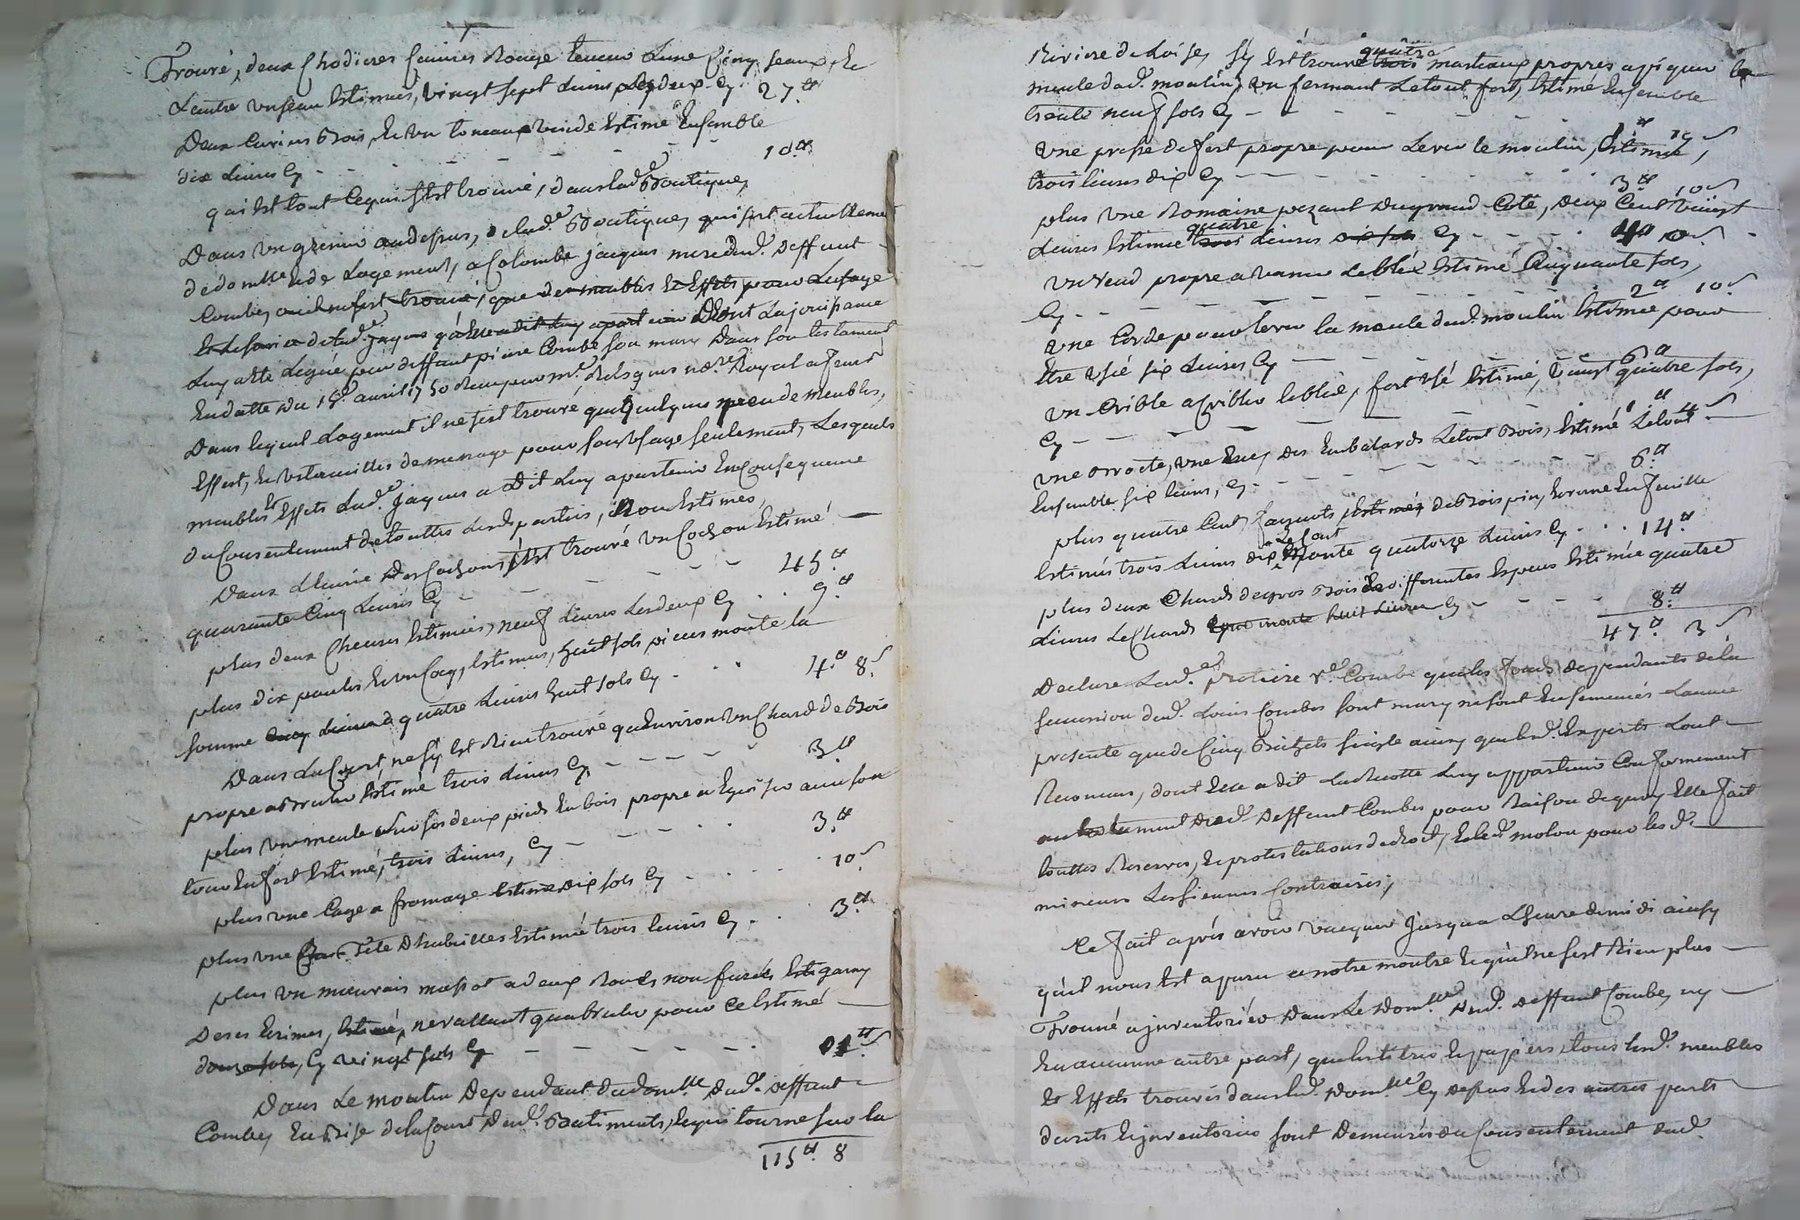 Trouvé, deux Chodieres Cuivres Rouge tenens L'une Cinq seaux, Et
L'autre un seau Estimées, vingt sept Livres les deux Cy 27.tt
Deux Cuviers Bois, Et un tonneau vuide Estimé Ensemble
dix Livres Cy - - - 10.tt
qui Est tout Ce qui s'Est trouvé, dans lad.e Boutique,
Dans un grenier au dessus, de lad.e Boutique, qui sert actuellement
de dom.lle Et de Logement, a Colombe jaques mere dud. deffunt
Combe, ou il ne s'est trouvé, que des meubles Et Effets pour L'usage
Et service de lad.e jaques Dont La jouissance
Luy a Eté Leguée par deffunt pierre Combe son mary Dans son testament
En datte du avril 1750 Receu par m.e not.re Royal a
Dans lequel Logement il ne s'est trouvé que quelques peu de meubles,
Effets, Et Ustancilles de menage pour son Usage seulement, Lesquels
meubles Et Effets Lad.e jaques a Dit Luy apartenir En Consequence
du Consentement de touttes Lesd. parties, non Estimés
Dans L'Ecurie Des Cochons s'Est trouvé un Cochon Estimé
quarante Cinq Livres Cy - - - 45.tt
plus deux Chevres Estimées, neuf Livres Les deux Cy . . 9.tt
plus dix poules Et un Coq, Estimés, huit sols pieces monte la
somme Cinq Livres a quatre Livres huit sols Cy - . . 4.tt 8.s
Dans La Court ne s'y Est Rien trouvé qu'Environ un Chard de Bois
propre a Bruler Estimé trois Livres Cy - - - 3.tt
plus une meule de deux pieds En bois propre a Eguiser avec son
tour En fert Estimé, trois Livres, Cy - - - 3.tt
plus une Cage a fromage Estimé Dix sols Cy - - - 10.s
plus une tete D'habilles Estimé trois Livres Cy - . . 3.tt
plus un mauvais a deux Roues non ferrées garny
De ses ne vallant qu'a bruler pour Ce Estimé
douze sols, Cy vingt sols Cy - - - 1.tt
Dans Le moulin Dependant du dom.lle Dud. deffunt
Combe, En Bise de la Court Dud. Batiments, Et qui tourne sur la
115.tt 8
Riviere de Loise, s'y Est trouvé trois quatre marteaux propres a piquer la
meule dud. moulin, un fermant Le tout fert, Estimé Ensemble
trente neuf sols Cy - - - 1.tt 19.s
une presse de fert propre pour Lever le moulin, Estimée,
trois livres dix Cy - - - 3.tt 10.s
plus une Romaine pezant Du grand Coté, deux Cent vingt
Livres Estimée trois quatre Livres dix sols Cy - - - 4.tt 10.s
un propre a vaner Le bled Estimé Cinquante sols,
Cy - - - 2.tt 10.s
une Corde pour lever la meule dud. moulin Estimée pour
Etre Usée six Livres Cy - - - 6.tt
un Crible a Cribler le bled, fort Usé Estimé, vingt quatre sols,
Cy - - - 1.tt 4.s
une Brocte, une Des Embalards Le tout Bois, Estimé Le tout
Ensemble six livres, Cy - - - 6.tt
plus quatre Cent fagots Estimés de Bois pin, Et verne En feuille
Estimés trois Livres dix Le Cent monte quatorze Livres Cy . . . 14.tt
plus deux Chards de gros Bois de differentes Especes Estimée quatre
Livres Le Chard Ce qui monte huit Livres Cy - - - 8.tt
47.tt 3.s
Declare Lad.e v.e Combe que les fonds dependants de la
succession dud. Louis Combe sont mary ne sont Ensemencés L'année
presente que de Cinq Bichets seigle ainsy que les d. Experts L'ont
Reconnus, dont Elle a dit La Recolte Luy appartenir Conformement
au testament Dud. Deffunt Combe pour Raison de quoy Elle fait
touttes Reserves, Et protestations de droit, Et led. molou pour les d.
mineurs Les siennes Contraires;
Ce fait après avoir vacqué jusqu'a L'heure de midi ainsy
qu'il nous Est aparu a notre montre Et qu'il ne s'est Rien plus
Trouvé a jnventorier Dans Le Dom.lle Dud. Deffunt Combe, ny
En aucune autre part, que les titres Et papiers, tous lesd. meubles
Et Effets trouvés dans led. Dom.lle Cy dessus Et des autres parts
decrits Et jnventoriés sont Demeurés du Consentement dud.